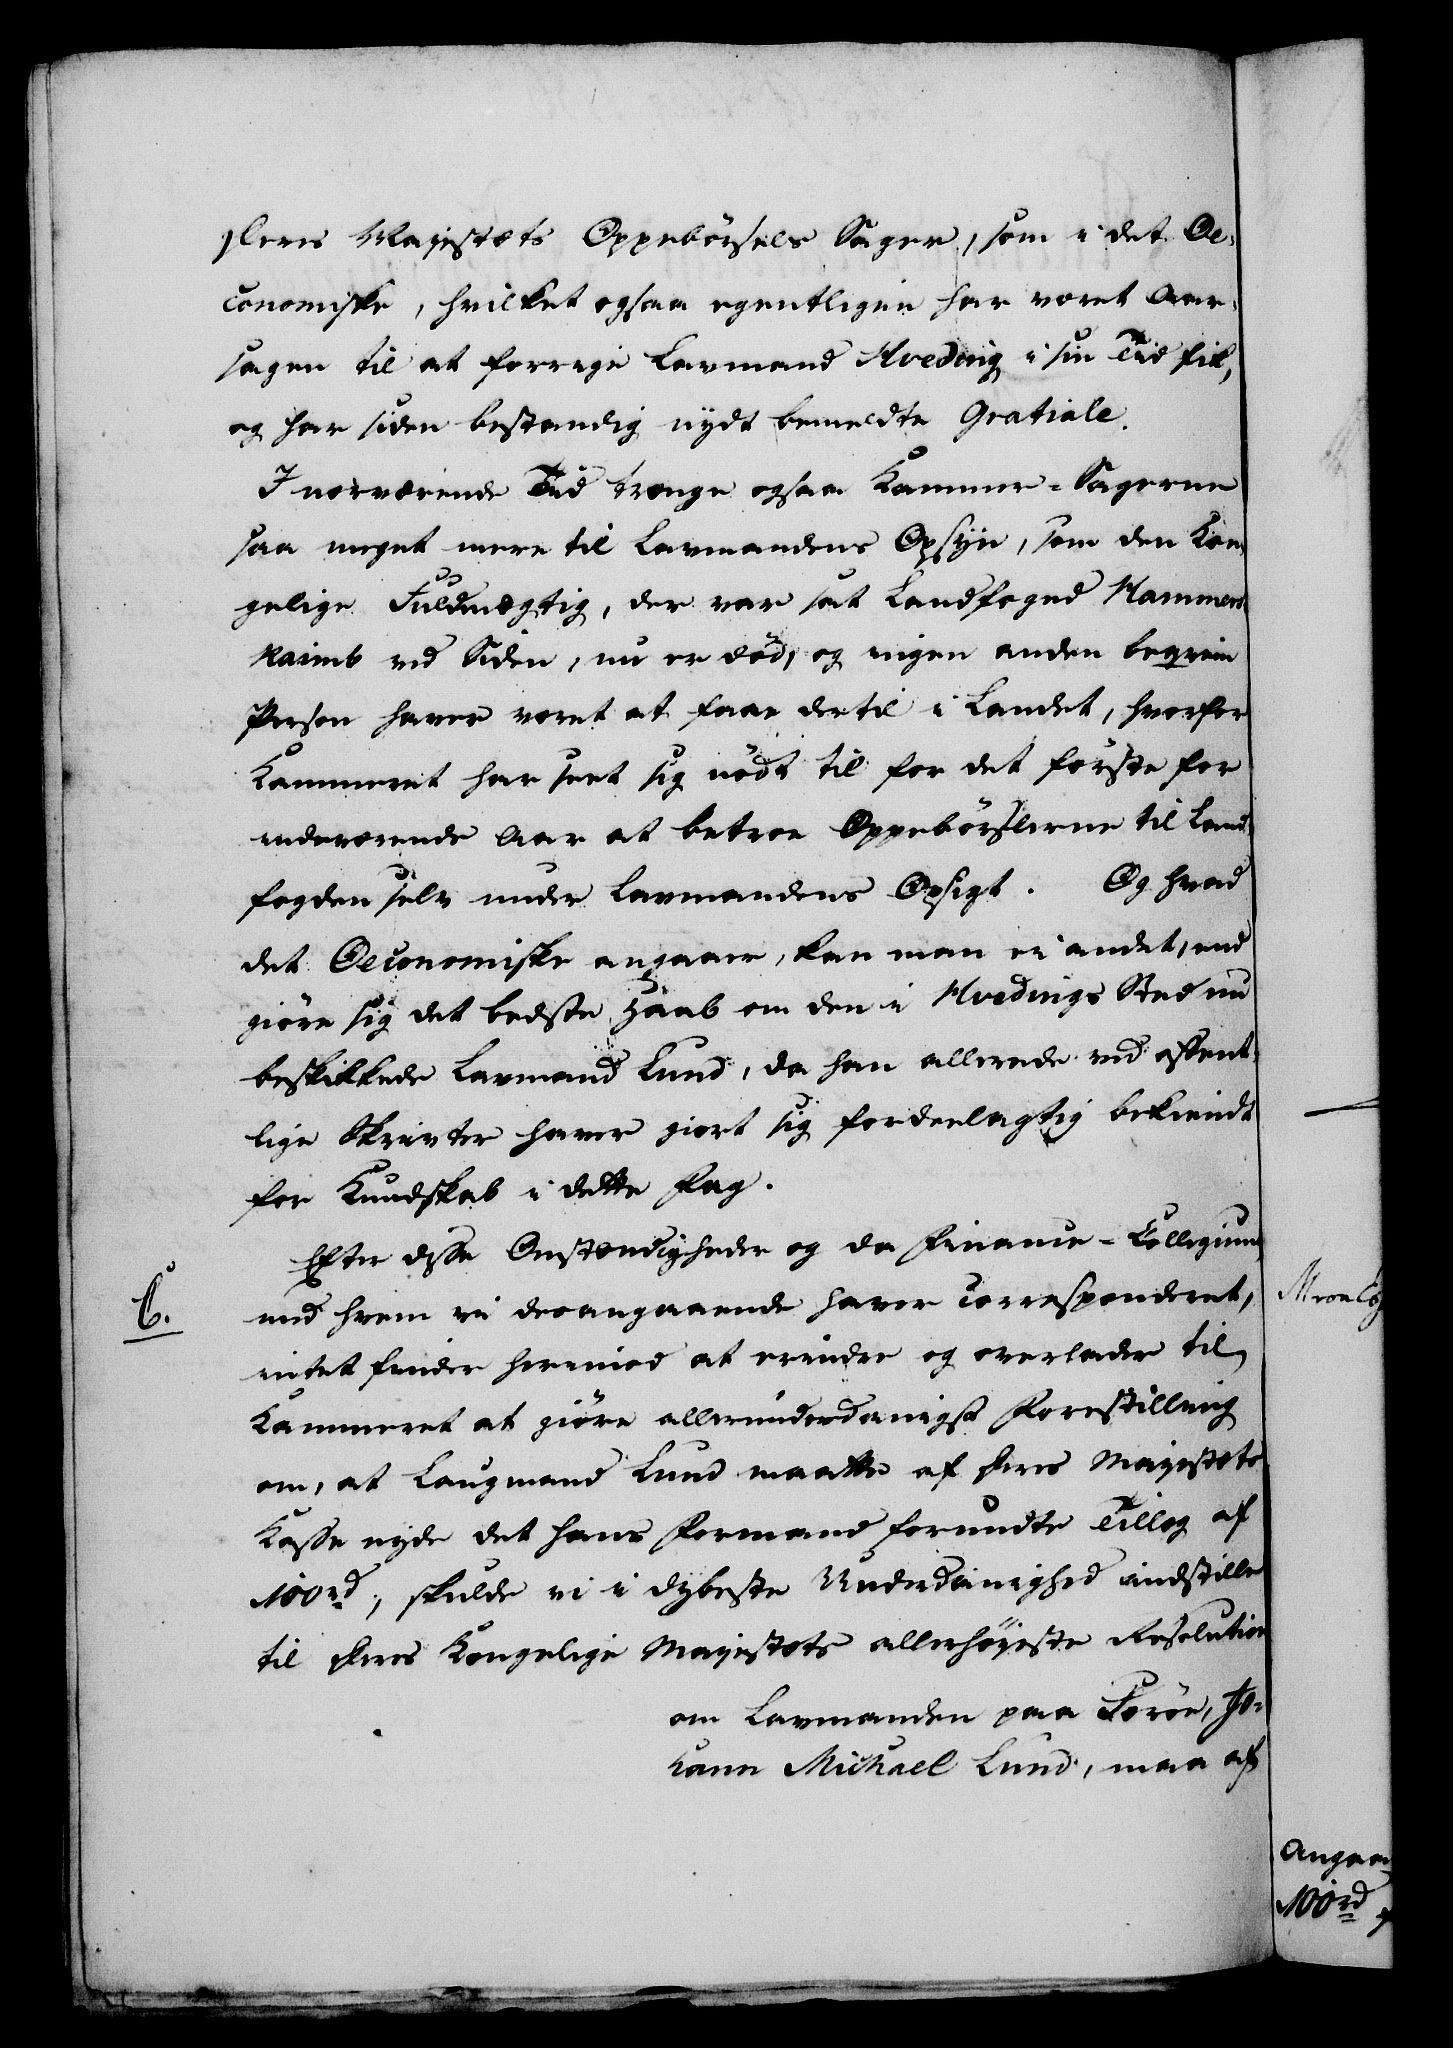 Deres Majestæts Oppebörsels Sager, som i det Oe-
conomiske, hvilket ogsaa egentligen har været Aar-
sagen til at forrige Lavmand Hveding i sin Tid fik,
og har siden bestandig nydt bemeldte Gratiale.
I nærværende Tid trænge ogsaa Kammer-Sagerne
saa meget mere til Lavmandens Opsyn, som den Kon-
gelige Fuldmægtig, der var sat Landfoged Hammers-
haimb ved Siden, nu er död, og ingen anden beqvem
Person haver været at faae dertil i Landet, hvorfor
Kammeret har seet sig nödt til for det förste for
indeværende Aar at betroe Oppebörslerne til Land-
fogden selv under Lavmandens Opsigt. Og hvad
det Oeconomiske angaaer, kan man ei andet, end
giöre sig det bedste Haab om den i Hvedings Sted nu
beskikkede Lavmand Lund, da han allerede ved offent-
lige Skrivter haver giort sig fordeelagtig bekiendt
for Kundskab i dette Fag.
Efter disse Omstændigheder og da Finance-Collegium
C. med hvem vi deroangaaende haver corresponderet,
intet finder herimod at erindre og overlader til
Kammeret at giöre allerunderdanigst Forestilling
om, at Laugmand Lund maatte af Deres Majestæts
Kasse nyde det hans Formand forundte Tillæg af
100 rd, skulde vi i dybeste Underdanighed indstille
til Deres Kongelige Majestæts allerhöyeste Resolution
om Lavmanden paa Færöe, Jo-
hann Michael Lund, maa af
Angaa
100 rd